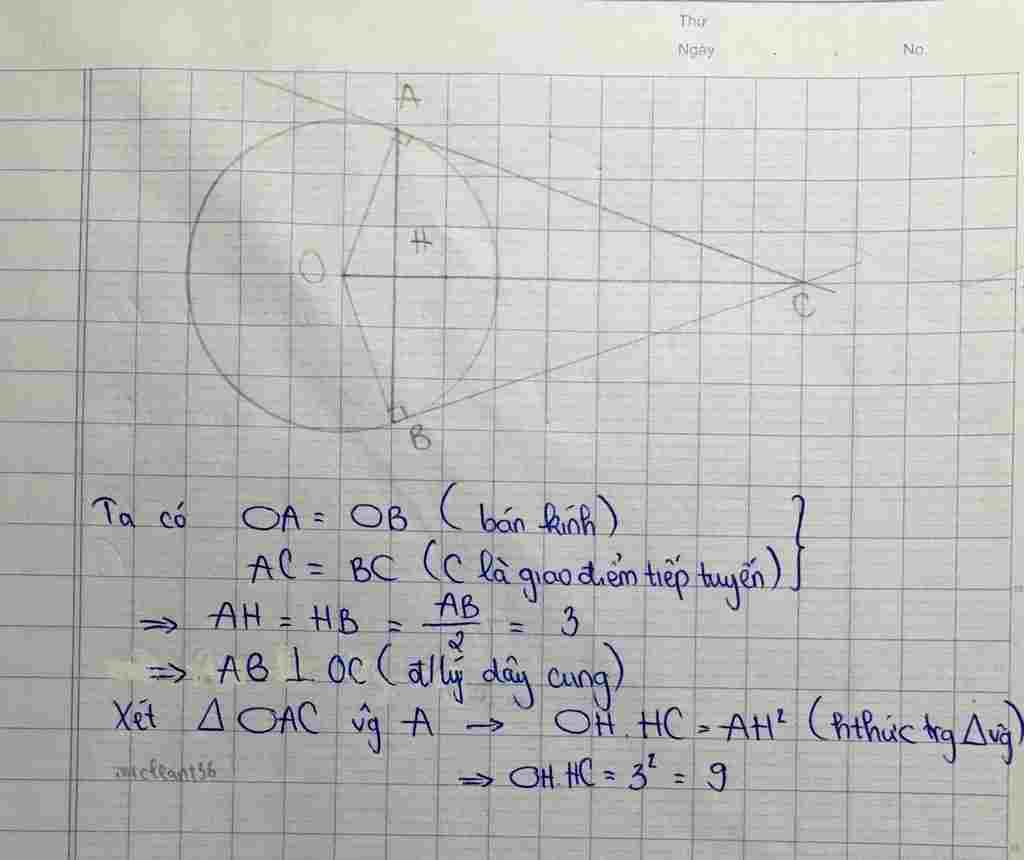 Thứ
Ngày No.
A
H
O
C
B
Ta có OA = OB (bán kính)
AC = BC (C là giao điểm tiếp tuyến) }
=> AH = HB = AB/2 = 3
=> AB ⊥ OC (đ/lý dây cung)
Xét Δ OAC vg A → OH.HC = AH² (hthức trg Δ vg)
=> OH.HC = 3² = 9